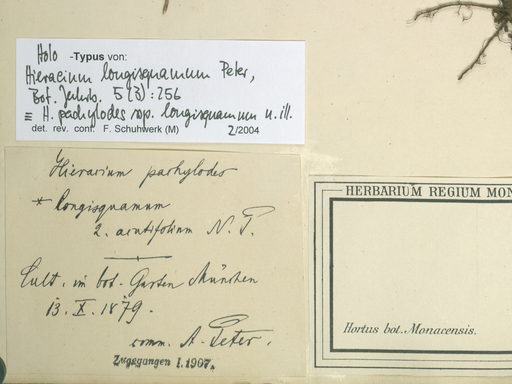 Holo -Typus von:
Hieracium longisquamum Peter,
Bot. Jahrb. 5 (3) : 256
≡ H. pachylodes ssp. longisquamum n. ill.
det. rev. conf. F. Schuhwerk (M) 2/2004
Hieracium pachylodes
* longisquamum
2. acutifolium N. P.
Cult. im bot. Garten München
13. X. 1879.
comm. A. Peter.
Zugegangen I. 1907.
HERBARIUM REGIUM MON
Hortus bot. Monacensis.